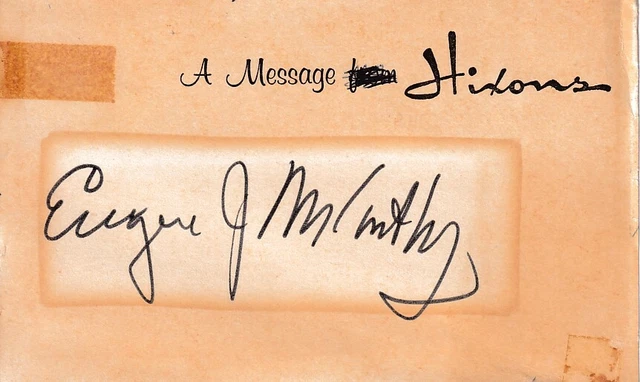 A Message Hixons
Eugene J McCarthy